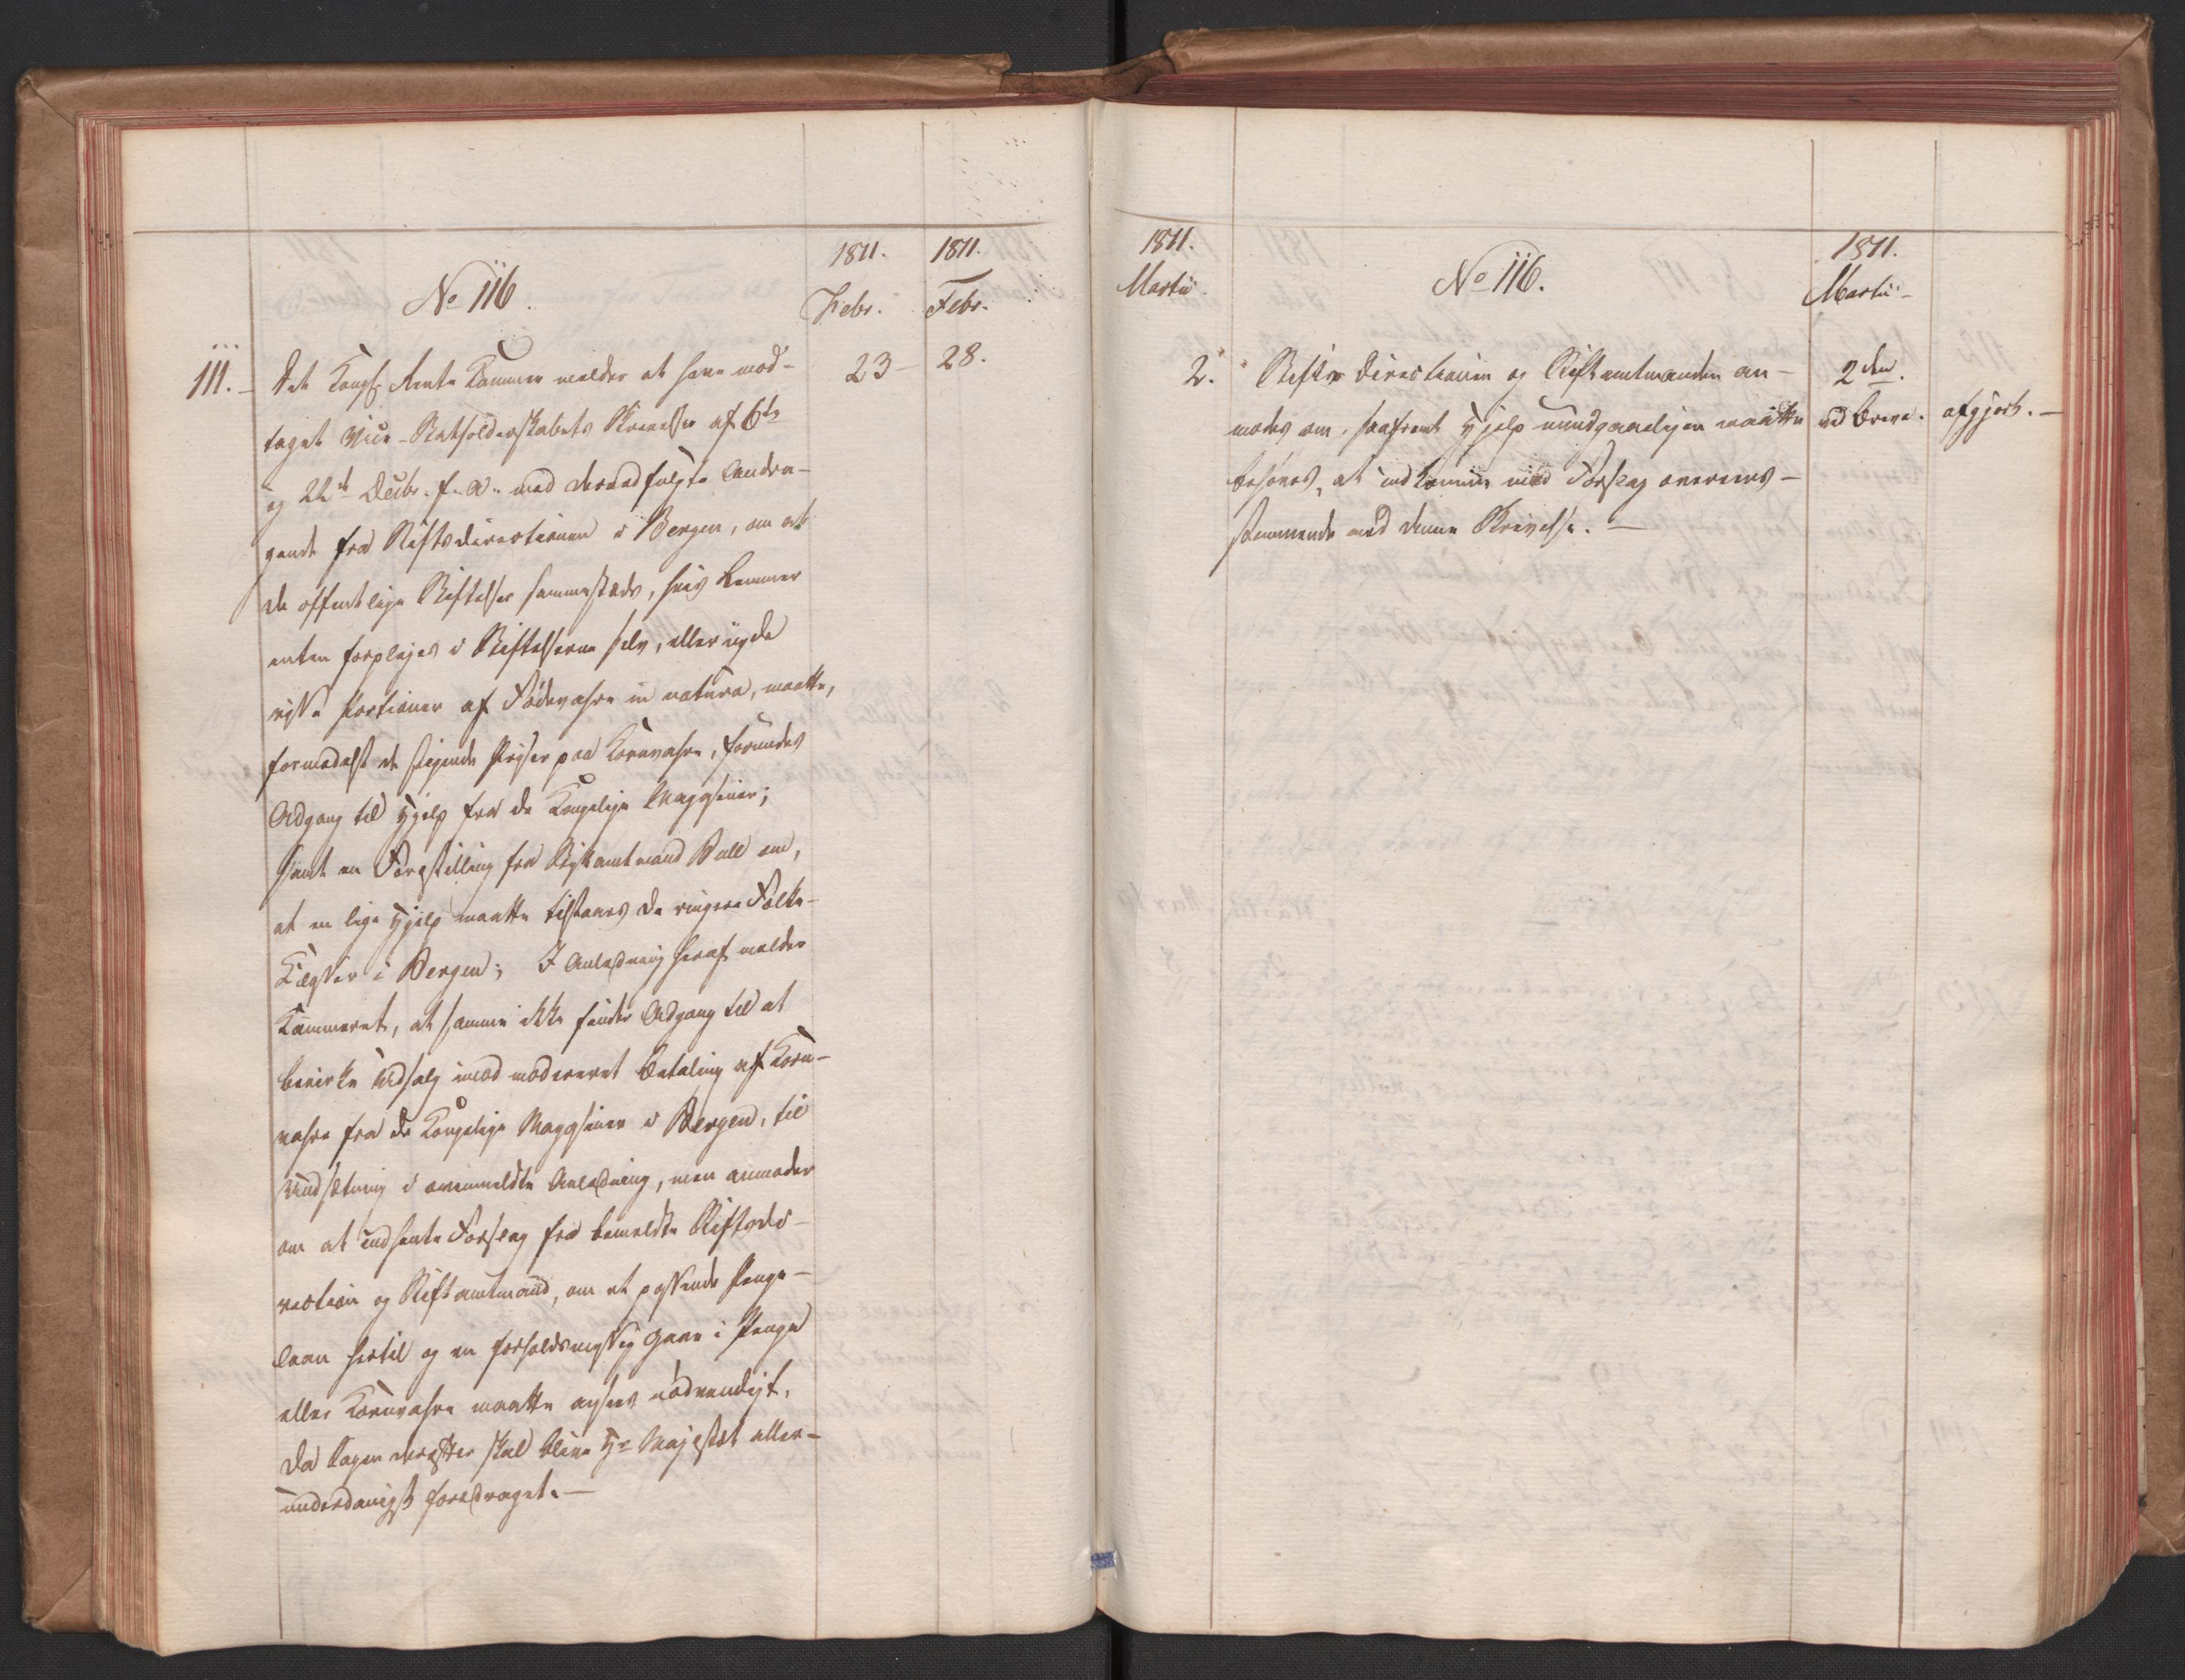 1811.
1811.
No 116.
Febr.
Febr.
111. Det Kongl. Rente Kammer melder at have mod-
23
28.
taget Vice-Statholderskabets Skrivelser af 6te
og 22de Decbr. f. A. med derved fulgte Andra-
gende fra Stiftsdirectionen i Bergen, om at
de offentlige Stiftelser sammesteds, hvis Lemmer
enten forplejes i Stiftelserne selv, eller nyde
visse Portioner af Födevahre in natura, maatte,
formedelst de stigende Priser paa Kornvahre, forundes
Adgang til Hjelp fra de Kongelige Magasiner;
samt en Forestilling fra Stiftamtmand Bull om,
at en lige Hjelp maatte tilstaaes de ringere Folke-
Klasser i Bergen; I Anledning heraf melder
Kammeret, at samme ikke finder Adgang til at
bevirke Udsalg imod modereret Betaling af Korn-
vahre fra de Kongelige Magasiner i Bergen, til
Undsætning i ovenmeldte Anledning, men anmoder
om at indhente Forslag fra bemeldte Stiftsdi-
rection og Stiftamtmand, om et passende Penge-
laan hertil og en forholdsmessig Gave i Penge
eller Kornvahre maatte ansees nödvendigt,
da Sagen derefter skal blive Hs Majestæt aller-
underdanigst foredraget.
1811.
Martii
No 116.
1811.
Martii
2. Stifts Directionen og Stiftamtmanden an-
2den
modes om, saafremt Hjelp uundgaaeligen maatte
ved Breve.
afgjort.
behöves, at indkomme med Forslag overeens-
stemmende med denne Skrivelse.